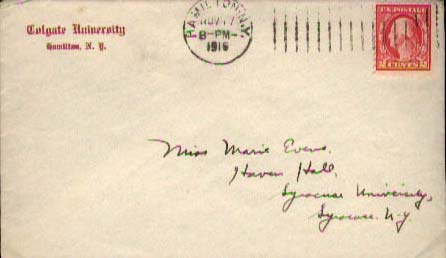 Colgate University
Hamilton, N. Y.
HAMILTON, N.Y.
NOV
8-PM
1916
U.S. POSTAGE
2 CENTS 2
Miss Marie Evans.
Haven Hall,
Syracuse University,
Syracuse. N.Y.